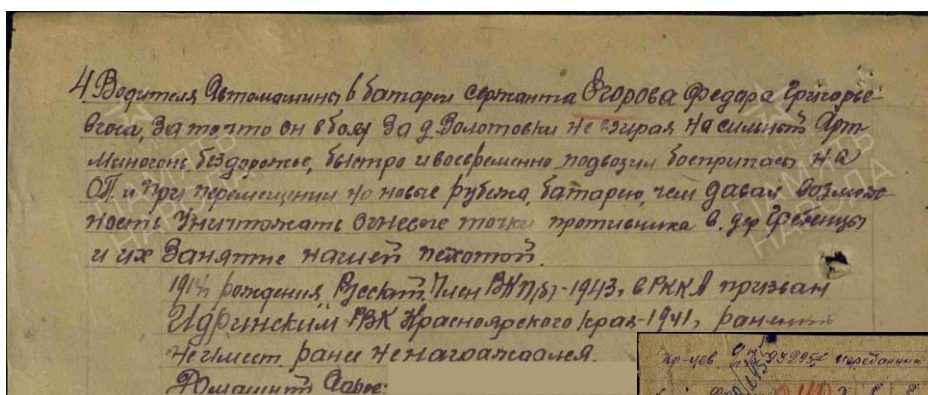 4 Водителя Автомашины 6 батареи сержанта Егорова Федора Григорье-
вича, За то что он в боях За д. Болотовки не взирая на сильный Арт-
миногонь, бездорожье, быстро и восвременно подвозил боеприпасы на
ОП. и при перемещении на новые рубежа, батарею, чем давал возмож-
ность Уничтожать огневые точки противника в дер.
и их Занятие нашей пехотой.
1914 г. рождения, Русский, Член ВКП/б/-1943 г. в РККА призван
Идринским РВК Красноярского края-1941 г, ранений
не имеет, ранее не награждался.
Домашний Адрес:
ПАМЯТЬ
НАРОДА